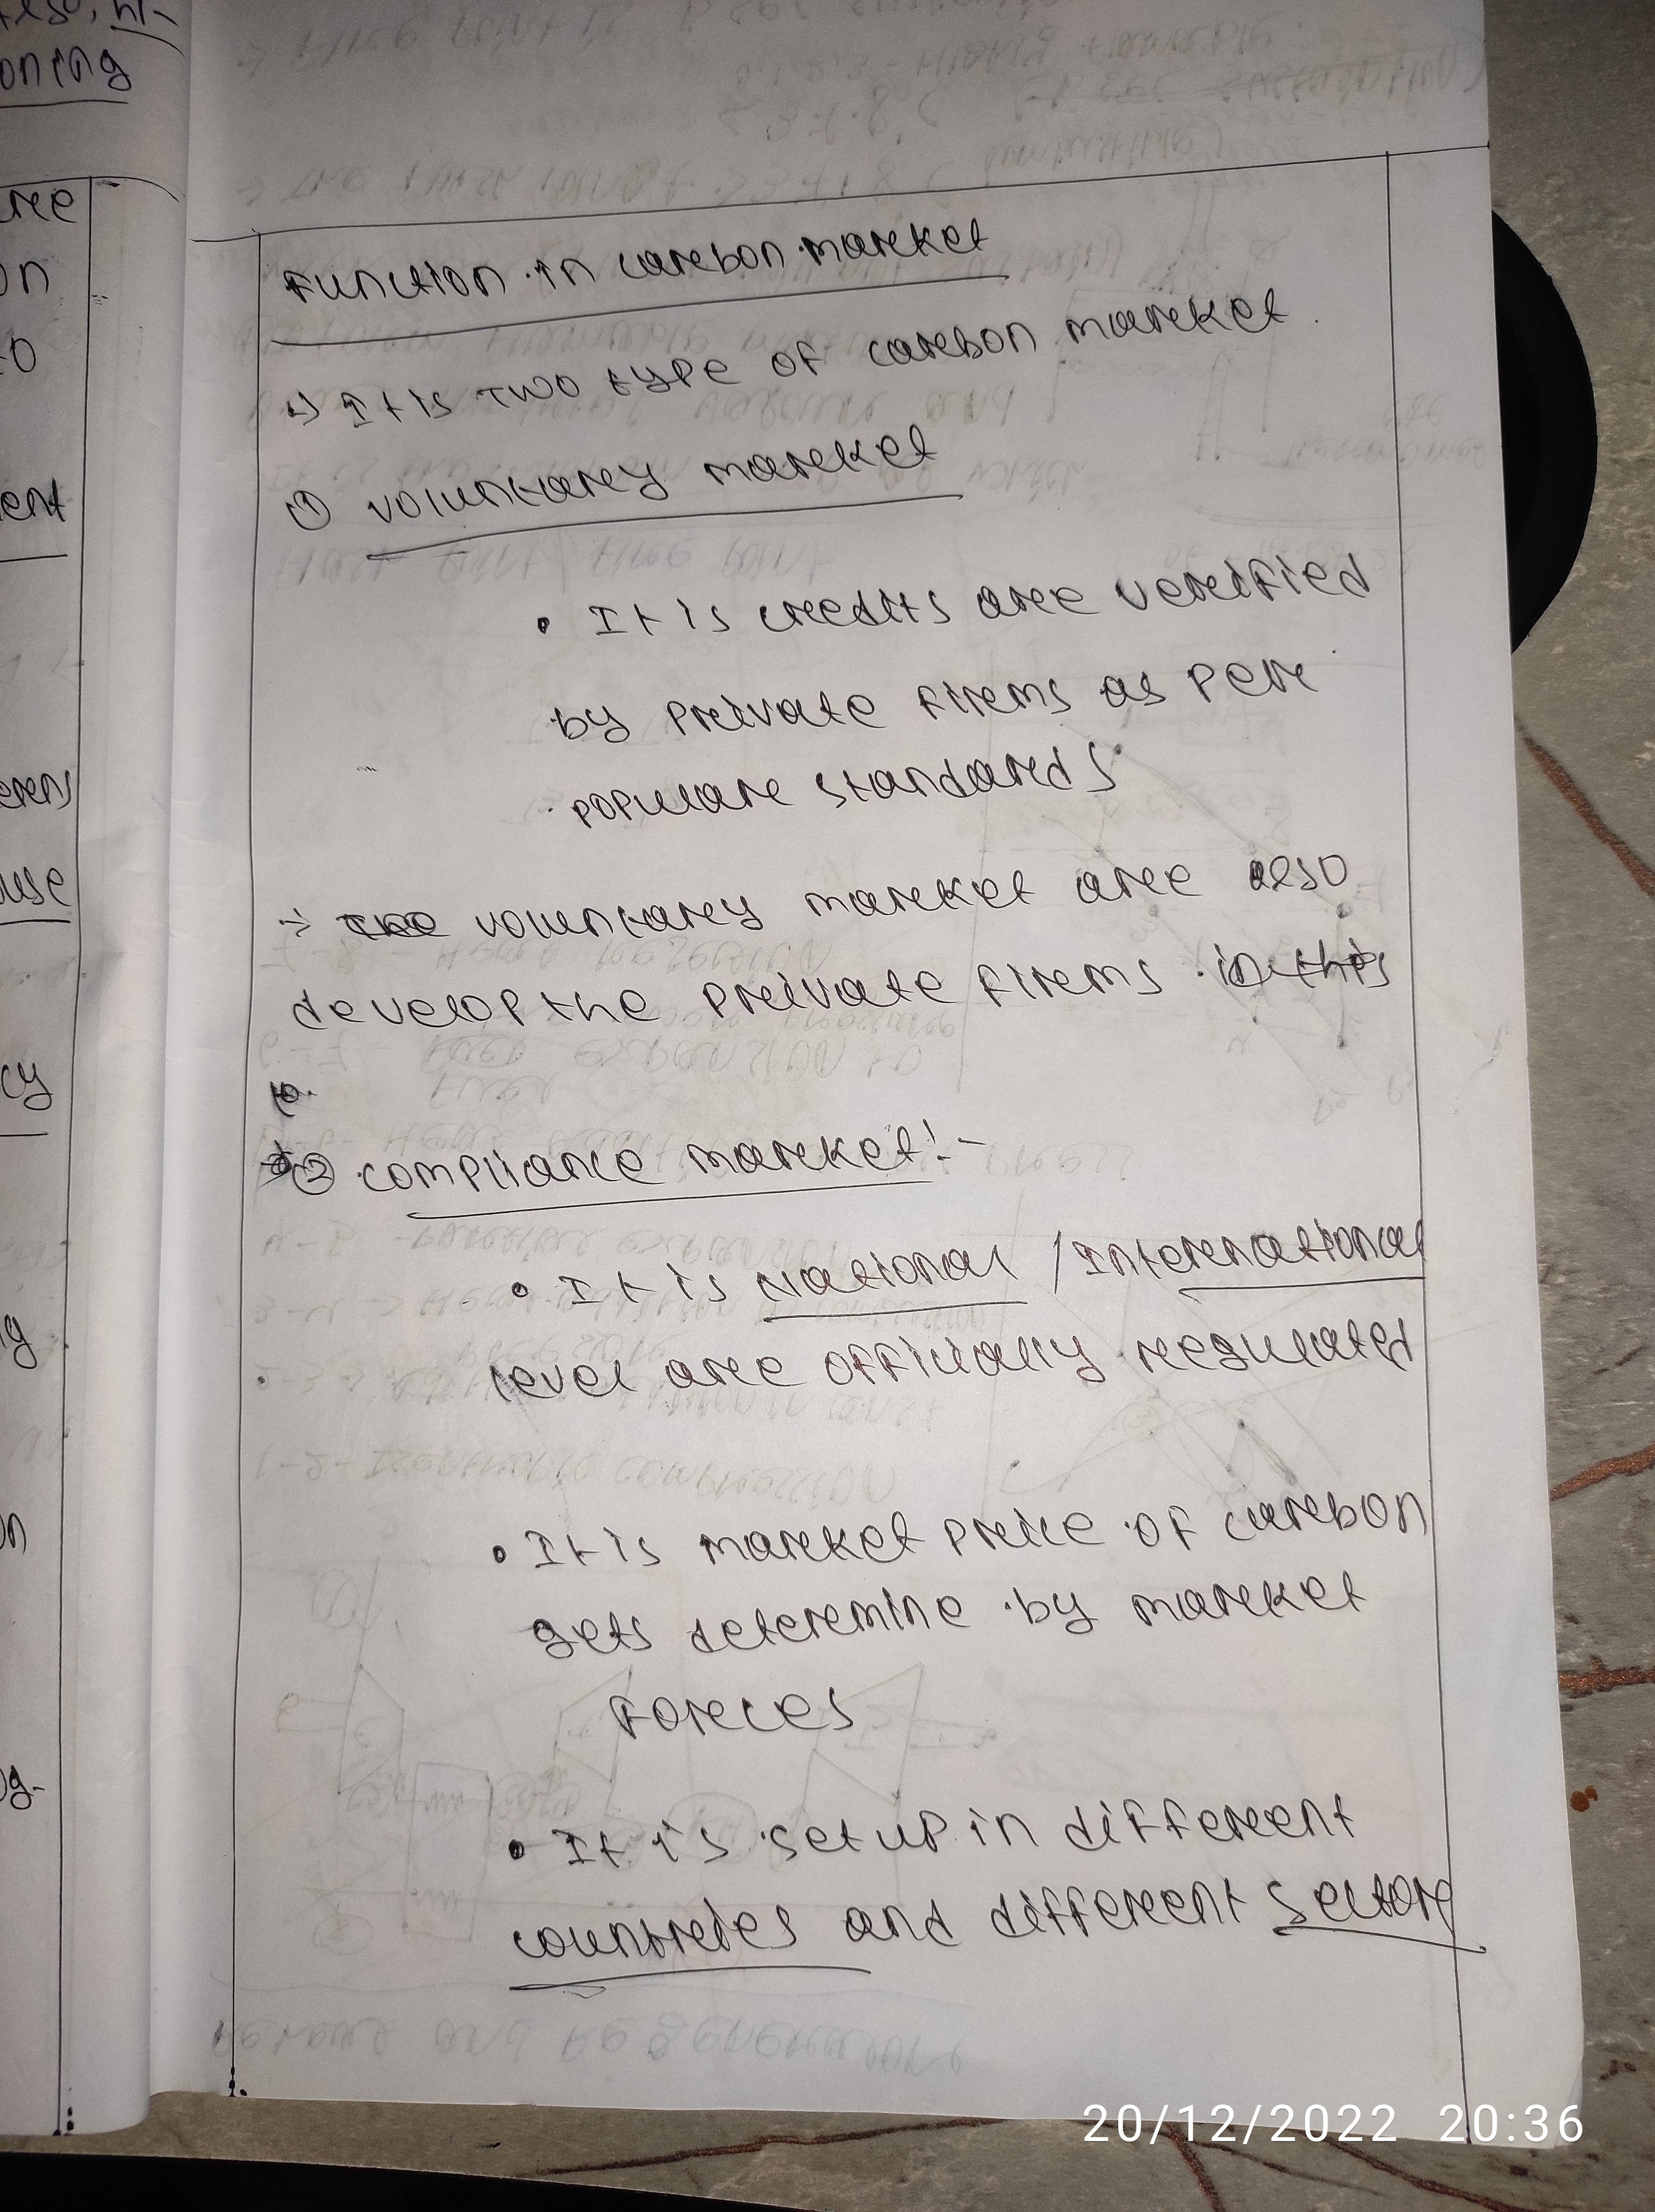 Function in carbon market
→ It is two type of carbon market
① voluntary market
• It is credits are verified
by private firms as per
popular standards
→ voluntary market are also
develop the private firms in this
② compliance market:-
• It is National / International
level are officially regulated
• It is market price of carbon
gets determine by market
forces
• It is setup in different
countries and different sector
oning
on
ent
use
cy
20/12/2022 20:36